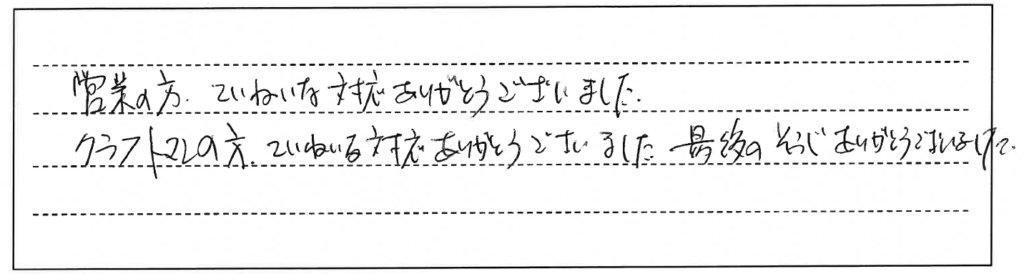 営業の方、ていねいな対応ありがとうございました。
クラフトマンの方、ていねいな対応ありがとうございました。最後のそうじありがとうございました。